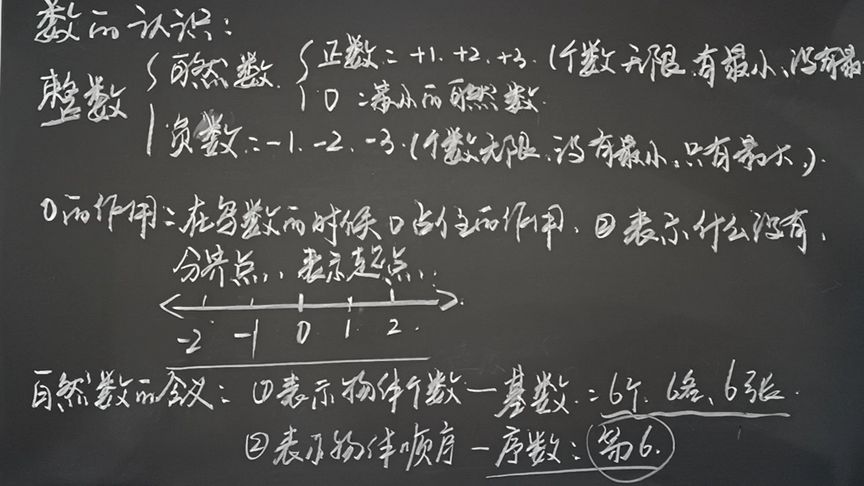 数的认识:
整数 { 自然数 { 正数:+1.+2.+3.(个数无限.有最小.没有最
0:最小的自然数.
负数:-1.-2.-3.(个数无限.没有最小.只有最大.).
0的作用:在写数的时候0占位的作用.②表示什么没有.
分界点,表示起点.
-2 -1 0 1 2.
自然数的含义:①表示物体个数—基数:6个.6名.6张.
②表示物体顺序—序数:第6.